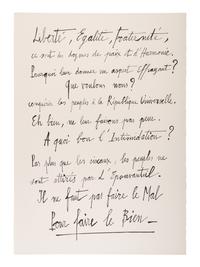 Liberté, Égalité, Fraternité,
ce sont les moyens de paix et d'Harmonie.
Pourquoi leur donner un aspect Effrayant?
Que voulons nous?
conquérir les peuples à la République Universelle.
Eh bien, ne leur faisons pas peur.
A quoi bon l'Intimidation?
Pas plus que les oiseaux, les peuples ne
sont attirés par l'Epouvantail.
Il ne faut pas faire le Mal
Pour faire le Bien_